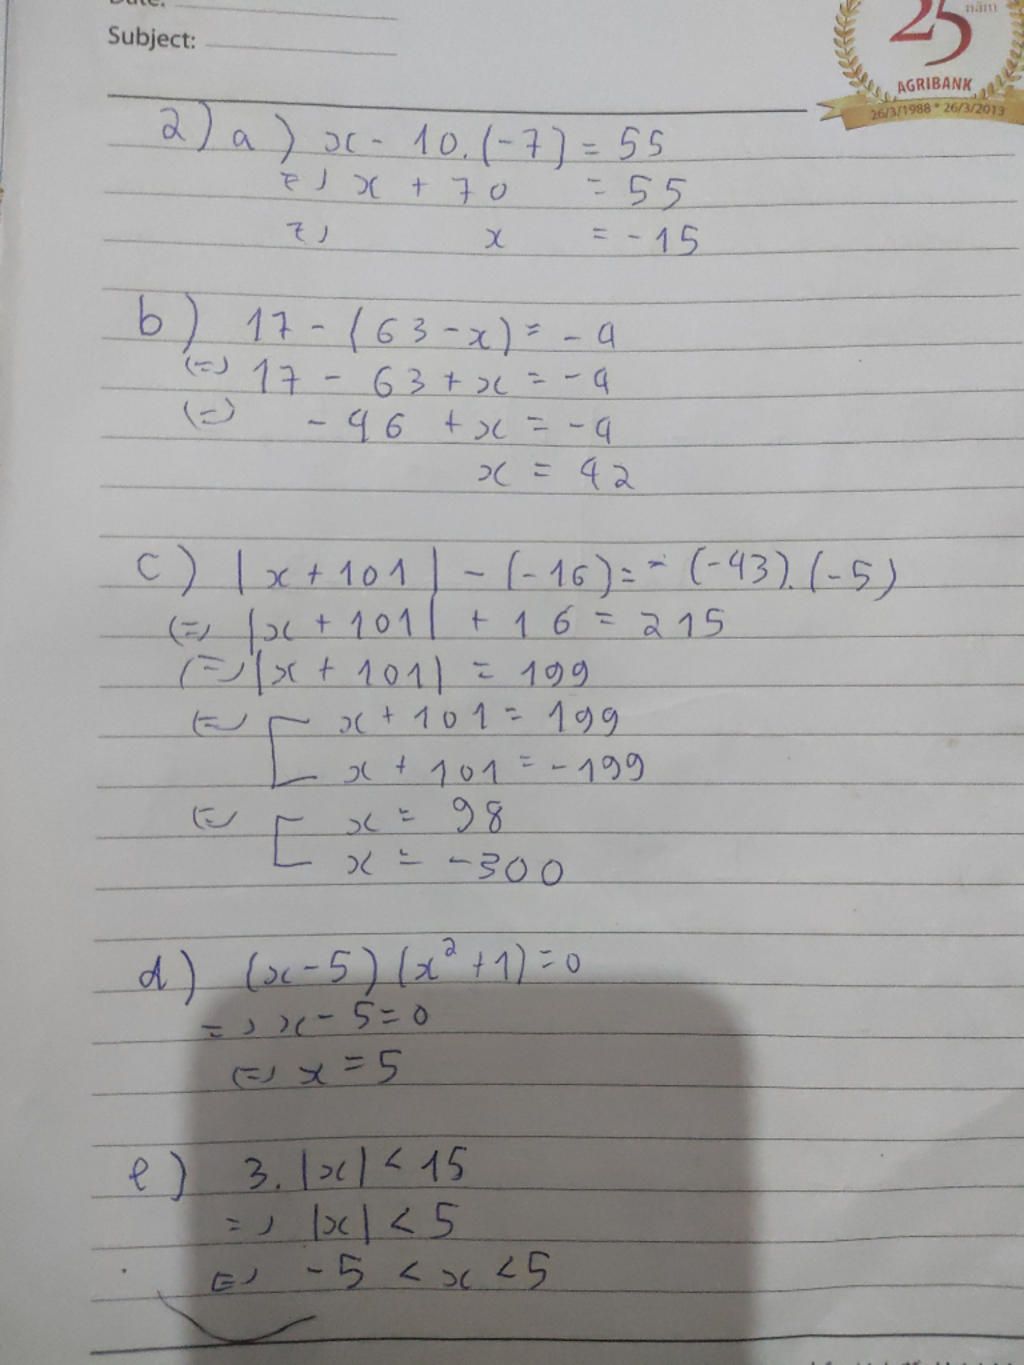 Subject:
25 năm
AGRIBANK
26/3/1988 * 26/3/2013
2) a) x - 10.(-7) = 55
=> x + 70 = 55
=> x = -15
b) 17 - (63 - x) = -4
<=> 17 - 63 + x = -4
<=> -46 + x = -4
x = 42
c) |x + 101| - (-16) = - (-43).(-5)
<=> |x + 101| + 16 = 215
<=> |x + 101| = 199
<=> [ x + 101 = 199
x + 101 = -199
<=> [ x = 98
x = -300
d) (x - 5)(x² + 1) = 0
=> x - 5 = 0
<=> x = 5
e) 3.|x| < 15
=> |x| < 5
<=> -5 < x < 5